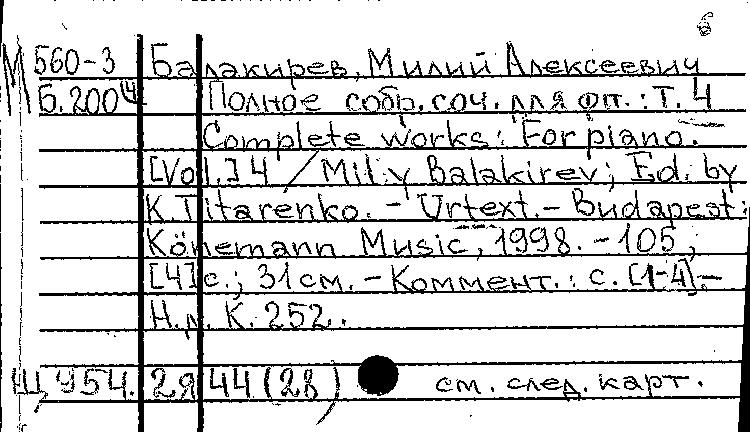 б
М 560-3 Балакирев, Милий Алексеевич
Б.200(4 Полное собр. соч. для фп. : Т. 4
Complete works: For piano.
[Vol.] 4 / Mily Balakirev; Ed. by
K. Titarenko. - Urtext. - Budapest:
Könemann Music, 1998. - 105,
[4] с.; 31 см. - Коммент.: с. [1-4]. -
Н.д. K. 252.
Щ 954.2Я44(28) см. след. карт.